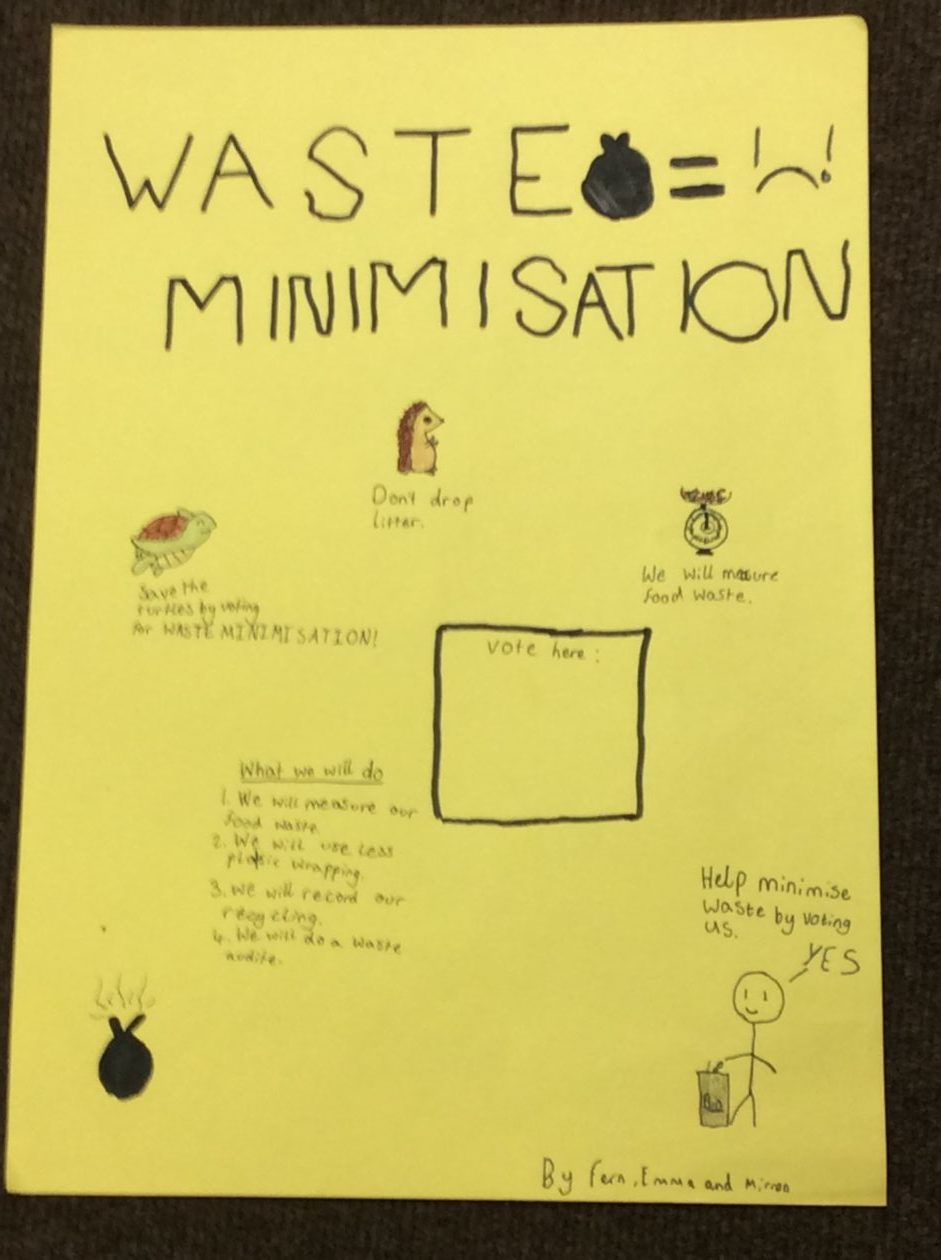 WASTE = !
MINIMISATION
Don't drop
litter.
Save the
turtles by voting
for WASTE MINIMISATION!
We will measure
food waste.
vote here :
What we will do
1. We will measure our
food waste
2. We will use less
plasic wrapping.
3. we will record our
recycling.
4. We will do a waste
audite.
Help minimise
waste by voting
us.
YES
Bin
By Fern, Emma and Mirren